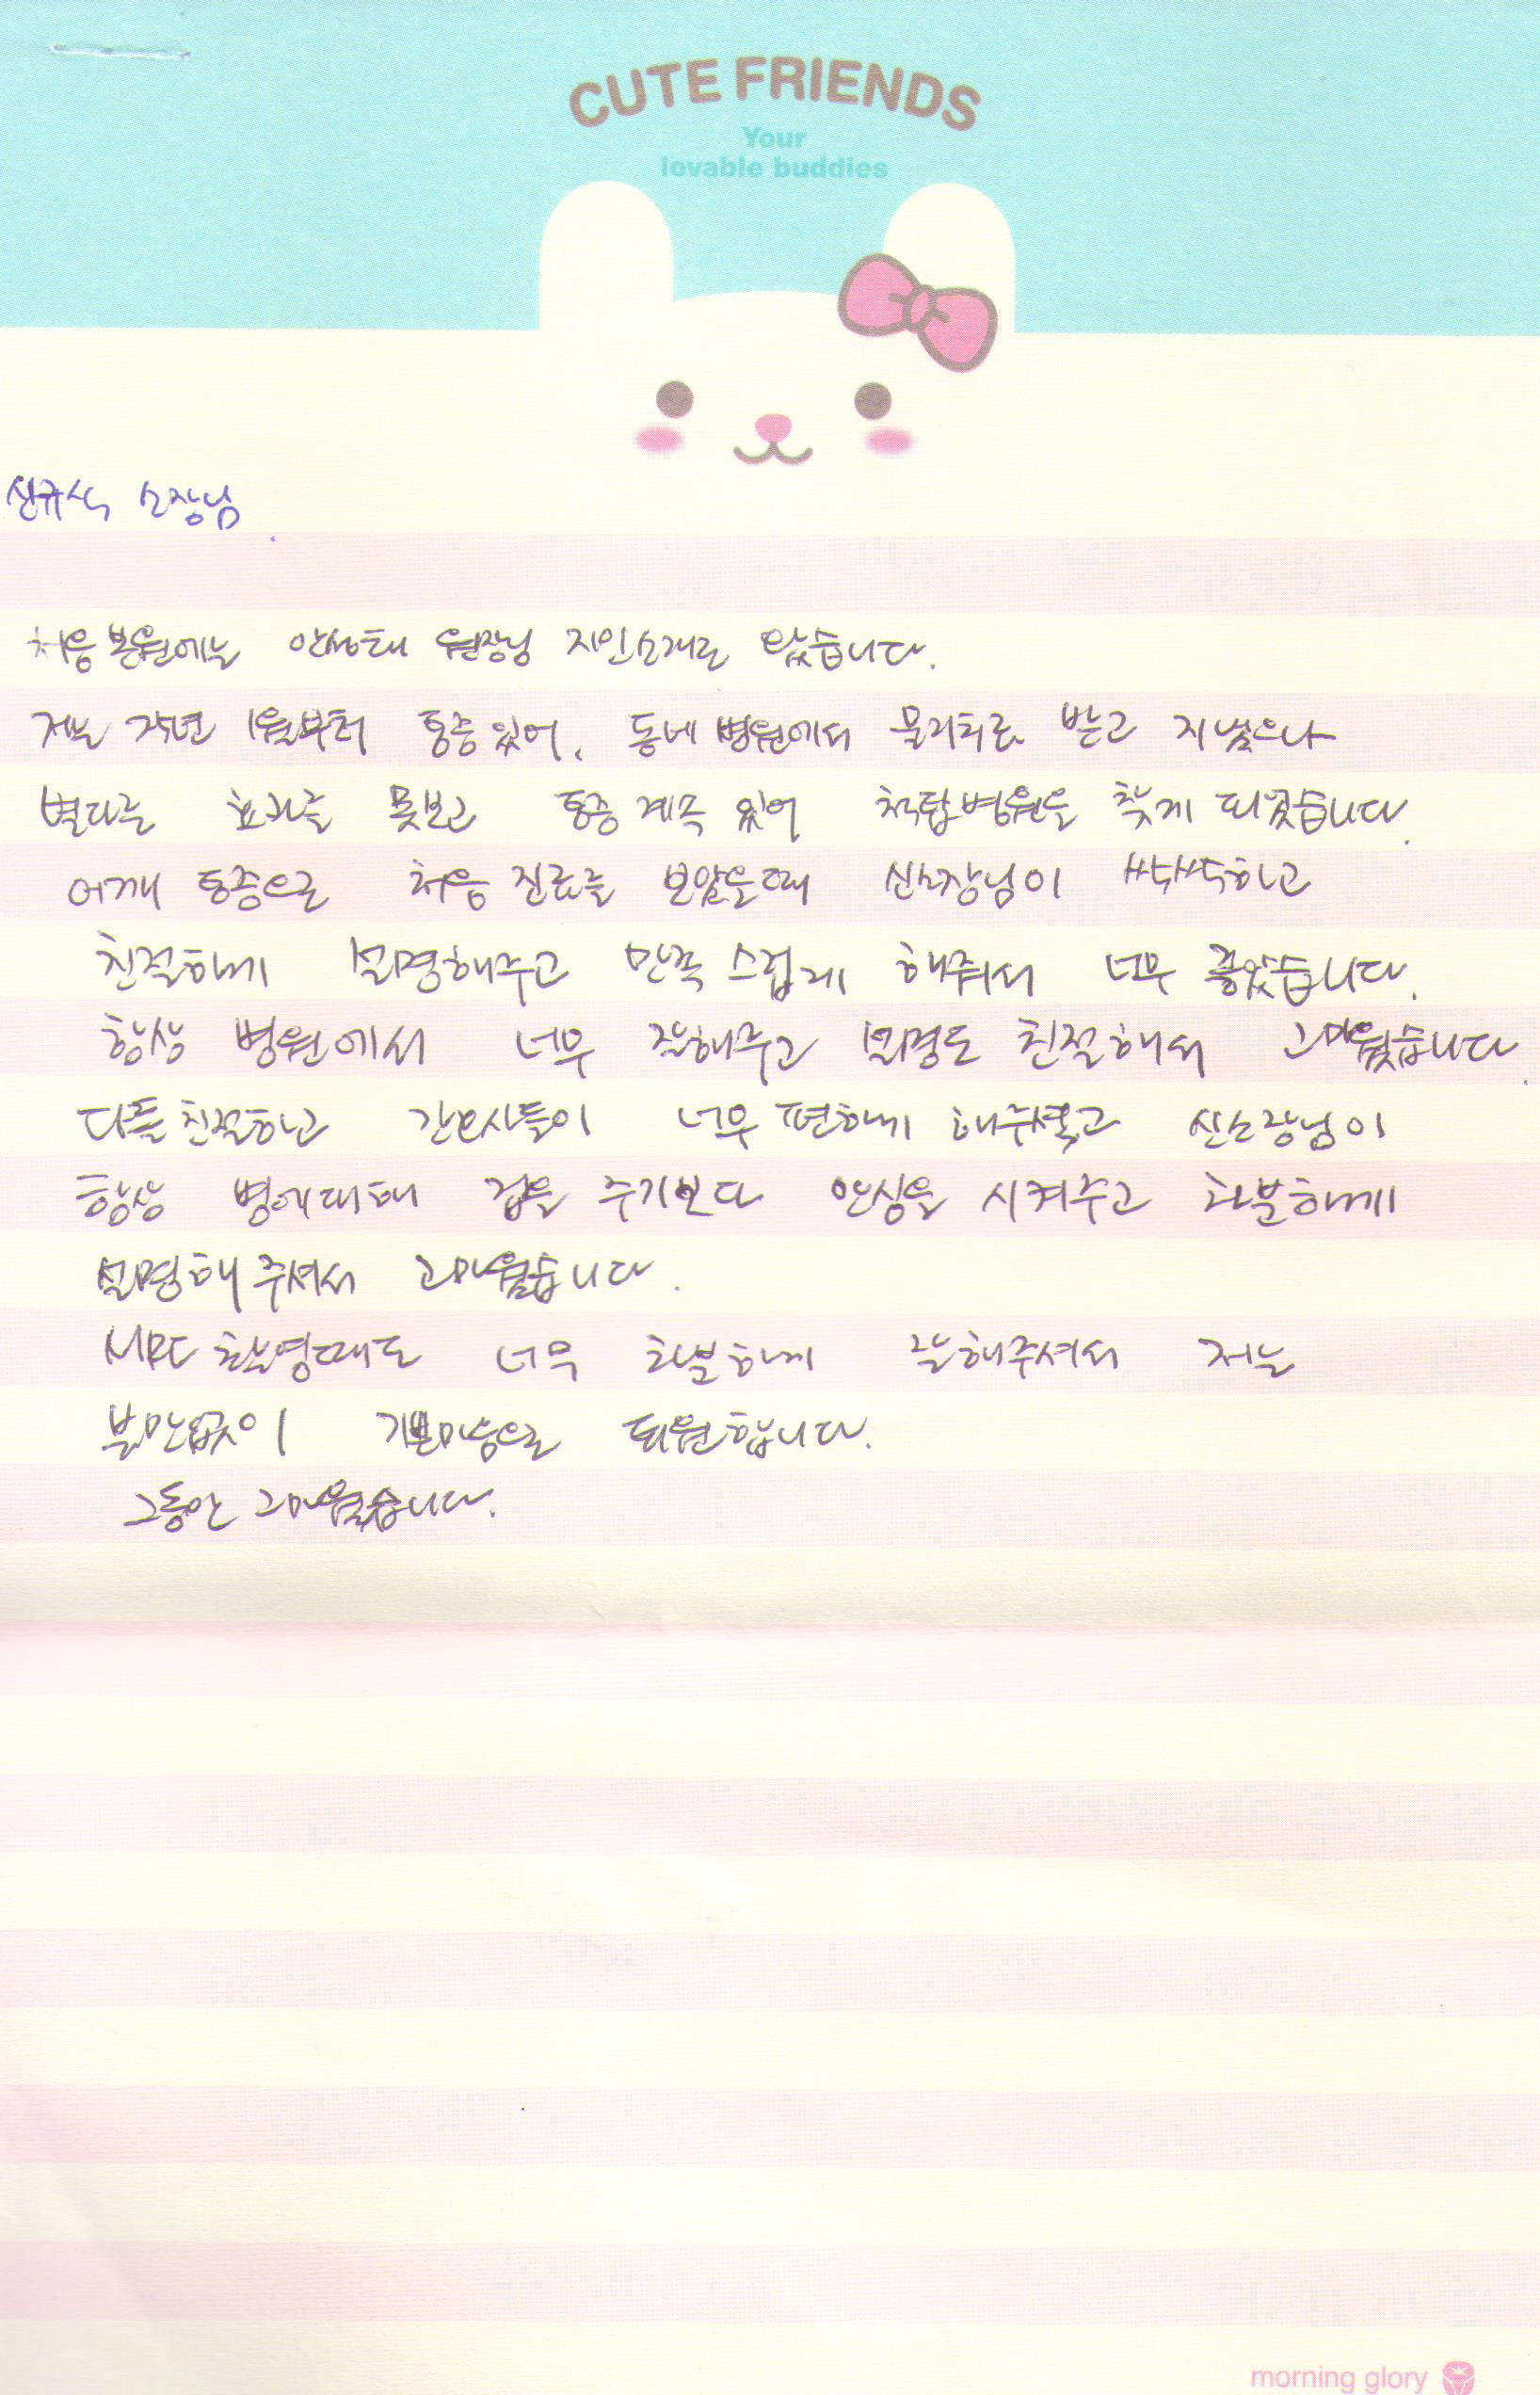 CUTE FRIENDS
Your
lovable buddies
신규식 소장님
처음 본원에는 안성태 원장님 지인소개로 왔습니다.
저는 25년 1월부터 통증있어, 동네 병원에서 물리치료 받고 지냈으나
별다른 효과를 못보고 통증 계속 있어 척탑병원을 찾게 되었습니다.
어깨 통증으로 처음 진료를 보았을때 신소장님이 싹싹하고
친절하게 설명해주고 만족스럽게 해줘서 너무 좋았습니다.
항상 병원에서 너무 잘해주고 설명도 친절해서 고마웠습니다.
다들 친절하고 간호사들이 너무 편하게 해주셨고 신소장님이
항상 병에대해 겁을 주기보다 안심을 시켜주고 차분하게
설명해 주셔서 고마웠습니다.
MRI 촬영때도 너무 차분하게 잘해주셔서 저는
불만없이 기쁜마음으로 퇴원합니다.
그동안 고마웠습니다.
morning glory